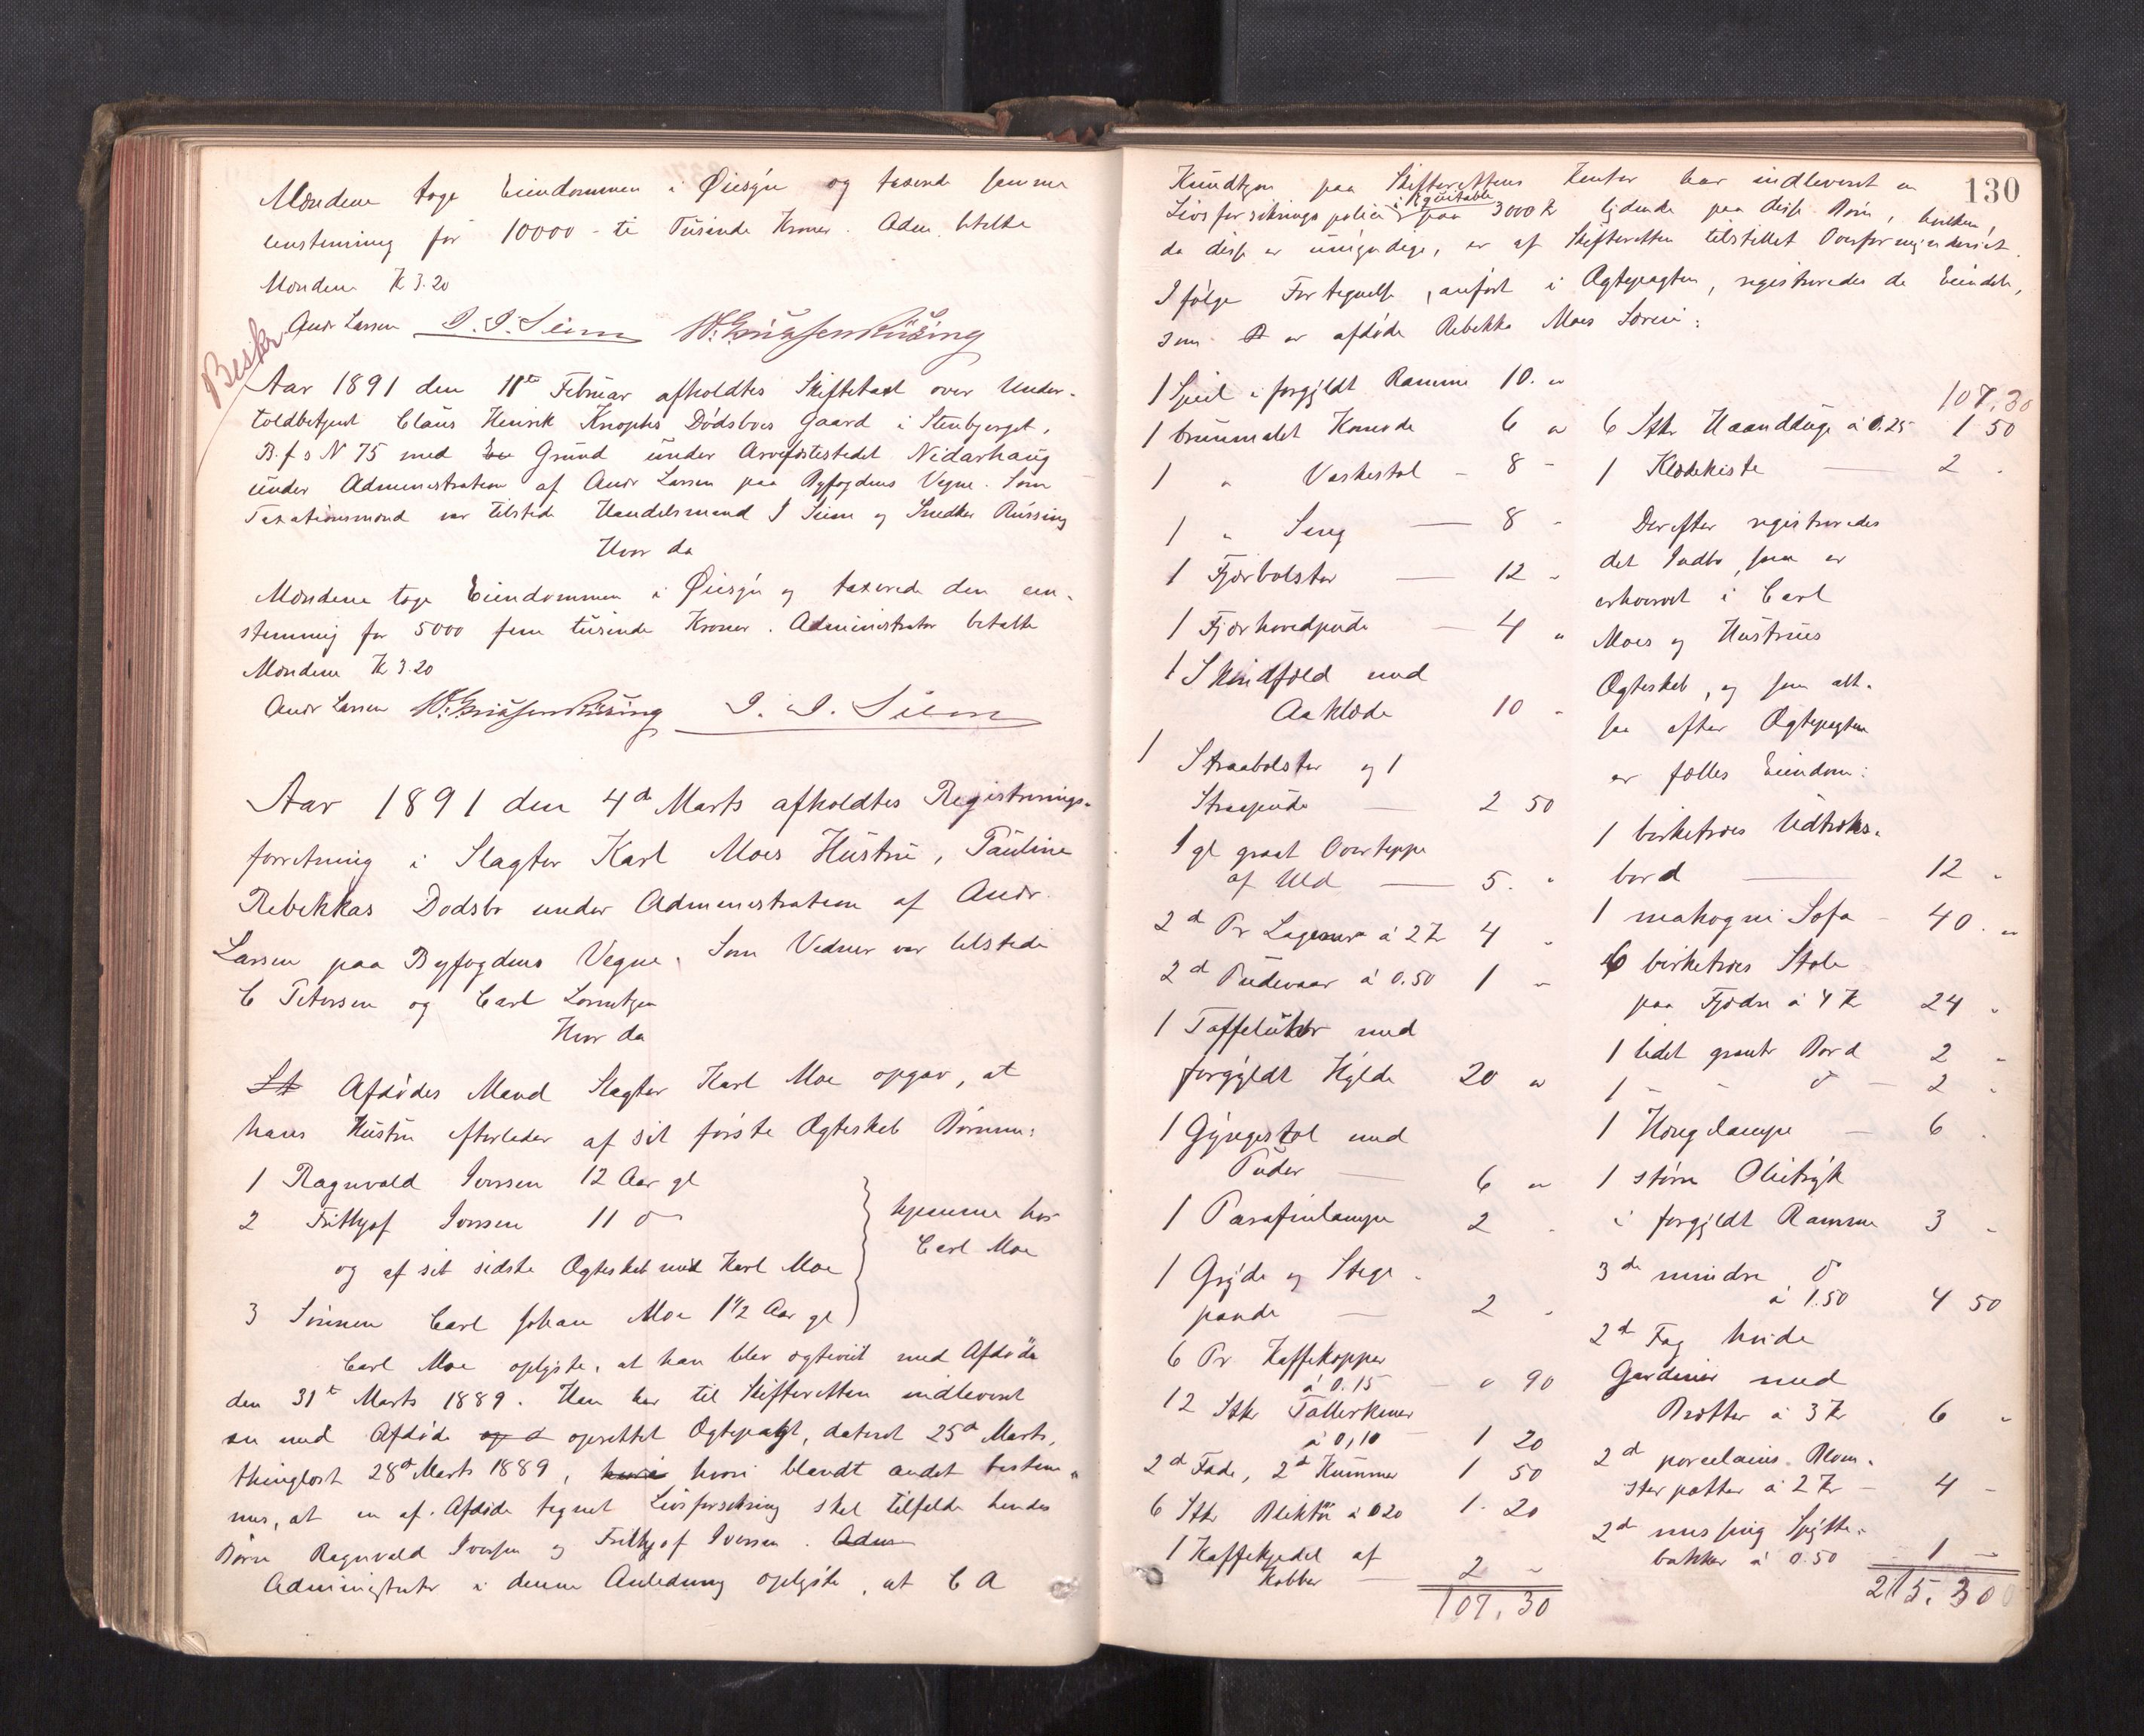 Mændene tage Eiendommen i Øiesyn og taxerede samme
eenstemmig for 10000 - ti Tusinde Kroner. Adm. betalte
Mændene Kr 3.20
Andr Larsen J. J. Siem
Beskr
Aar 1891 den 11te Februar afholdtes Skiftetaxt over Under-
toldbetjent Claus Henrik Knophs Dødsboes Gaard i Stenbjerget,
B.f s N 75 med Grund under Arvefæstestedet Nidarhaug
under Administration af Andr Larsen paa Byfogdens Vegne. Som
Taxationsmænd var tilstede Handelsmand J Siem og Snedker Rüssing
Hvor da
Mændene toge Eiendommen i Øiesyn og taxerede den een-
stemmig for 5000 fem tusinde Kroner. Administrator betalte
Mændene Kr 3.20
Andr Larsen J. J. Siem
Aar 1891 den 4de Marts afholdtes Registrerings-
forretning i Slagter Karl Moes Hustru, Pauline
Rebekkas Dødsbo under Administration af Andr.
Larsen paa Byfogdens Vegne. Som Vidner var tilstede
C Petersen og Carl Lorentzen
Hvor da
Afdødes Mand Slagter Karl Moe opgav, at
hans Hustru efterlader af sit første Ægteskab Børnene:
1 Ragnvald Iversen 12 Aar gl
2 Frithjof Iversen 11 do
og af sit sidste Ægteskab med Karl Moe
3 Sønnen Carl Johan Moe 1 1/2 Aar gl
hjemme hos
Carl Moe
Carl Moe oplyste, at han blev ægteviet med Afdøde
den 31te Marts 1889. Han har til Skifteretten indleveret
en med Afdøde oprettet Ægtepagt, dateret 25de Marts,
thinglæst 28de Marts 1889, hvori blandt andet bestem-
mes, at en af Afdøde tegnet Livsforsikring skal tilfalde hendes
Børn Ragnvald Iversen og Frithjof Iversen. Adm
Administrator i denne Anledning oplyste, at C A
130
Knudtzon paa Skifterettens Kontor har indleveret en
Livsforsikringspolice i Equitable paa 3000 Kr lydende paa disse Børn, hvilken,
da disse er umyndige, er af Skifteretten tilstillet Overformynderiet.
Ifølge Fortegnelse, anført i Ægtepagten, registreredes de Eiendele,
som er afdøde Rebekka Moes Særeie:
1 Speil i forgyldt Ramme 10. "
1 brunmalet Komode 6 "
1 " Vaskestol - 8 -
1 " Seng - 8 -
1 Fjærbolster - 12 -
1 Fjærhovedpude - 4 "
1 Skindfæld med
Aaklæde 10 -
1 Straabolster og 1
Straapude - 2 50
1 gl graat Overteppe
af Uld - 5. "
2d Pr Lagener à 2 Kr 4 "
2d Pudevaar à 0.50 1 -
1 Taffeluhr med
forgyldt Hylde 20 "
1 Gyngestol med
Puder - 6 "
1 Parafinlampe 2 -
1 Gryde og Stege-
pande - 2 -
6 Pr Kaffekopper
à 0.15 - " 90
12 Stkr Tallerkener
à 0,10 - 1 20
2d Fade, 2d Kummer 1 50
6 Stkr à 0 20 1. 20
1 Kaffekjedel af
Kobber - 2 -
107. 30
107.30
6 Stkr Haandduge à 0.25 1 50
1 Klædekiste - 2 -
Derefter registreredes
det Indbo, som er
erhvervet i Carl
Moes og Hustrues
Ægteskab, og som alt-
saa efter Ægtepagten
er fælles Eiendom:
1 birketræes Udtræks-
bord - 12 -
1 mahogni Sofa - 40. "
6 birketræes Stole
paa Fjædre à 4 Kr 24 "
1 lidet grønt Bord 2 -
1 - - do - 2 -
1 Hængelampe - 6 -
1 større Olietryk
i forgyldt Ramme 3 -
3de mindre do
à 1.50 4 50
2d Fag hvide
Gardiner med
Brætter à 3 Kr 6 "
2d porcelains Blom-
sterpotter à 2 Kr - 4 -
2d messing Spytte-
bakker à 0.50 1 -
215. 30